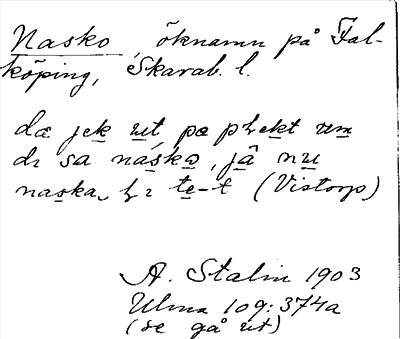 Nasko, öknamn på Fal-
köping, Skarab. l.
da jek ut pa plrekt um
di sa násko, jâ nu
naska te-t (Vistorp)
A. Stalin 1903
Ulma 109:374a
(se gå ut)